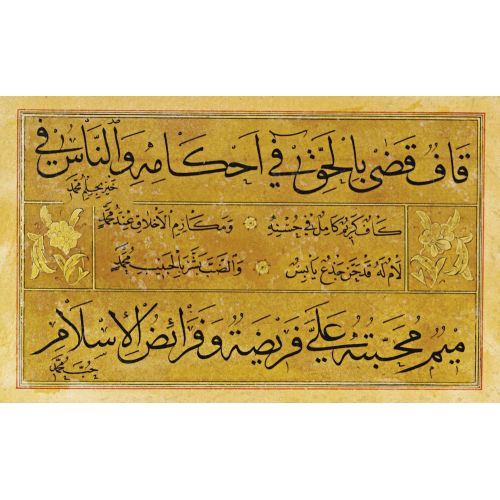 قَافُ قَضٰى بِالْحَقِّ فِي اَحْكَامِهِ وَالنَّاسُ فِي
خَيْرٍ بِحِلْمِ مُحَمَّد
كَافُ كَرِيمٌ كَامِلٌ فِي حُسْنِهِ وَمَكَارِمُ الْاَخْلَاقِ عِنْدَ مُحَمَّد
لَامُ لَهُ قَدْ حَنَّ جِذْعٌ يَابِسٌ وَالضَّبُّ بَشَّرَ بِالْحَبِيبِ مُحَمَّد
مِيمُ مُحَبَّتُهُ عَلَيَّ فَرِيضَةٌ وَفَرَائِضُ الْاِسْلَامِ
حُبُّ مُحَمَّد